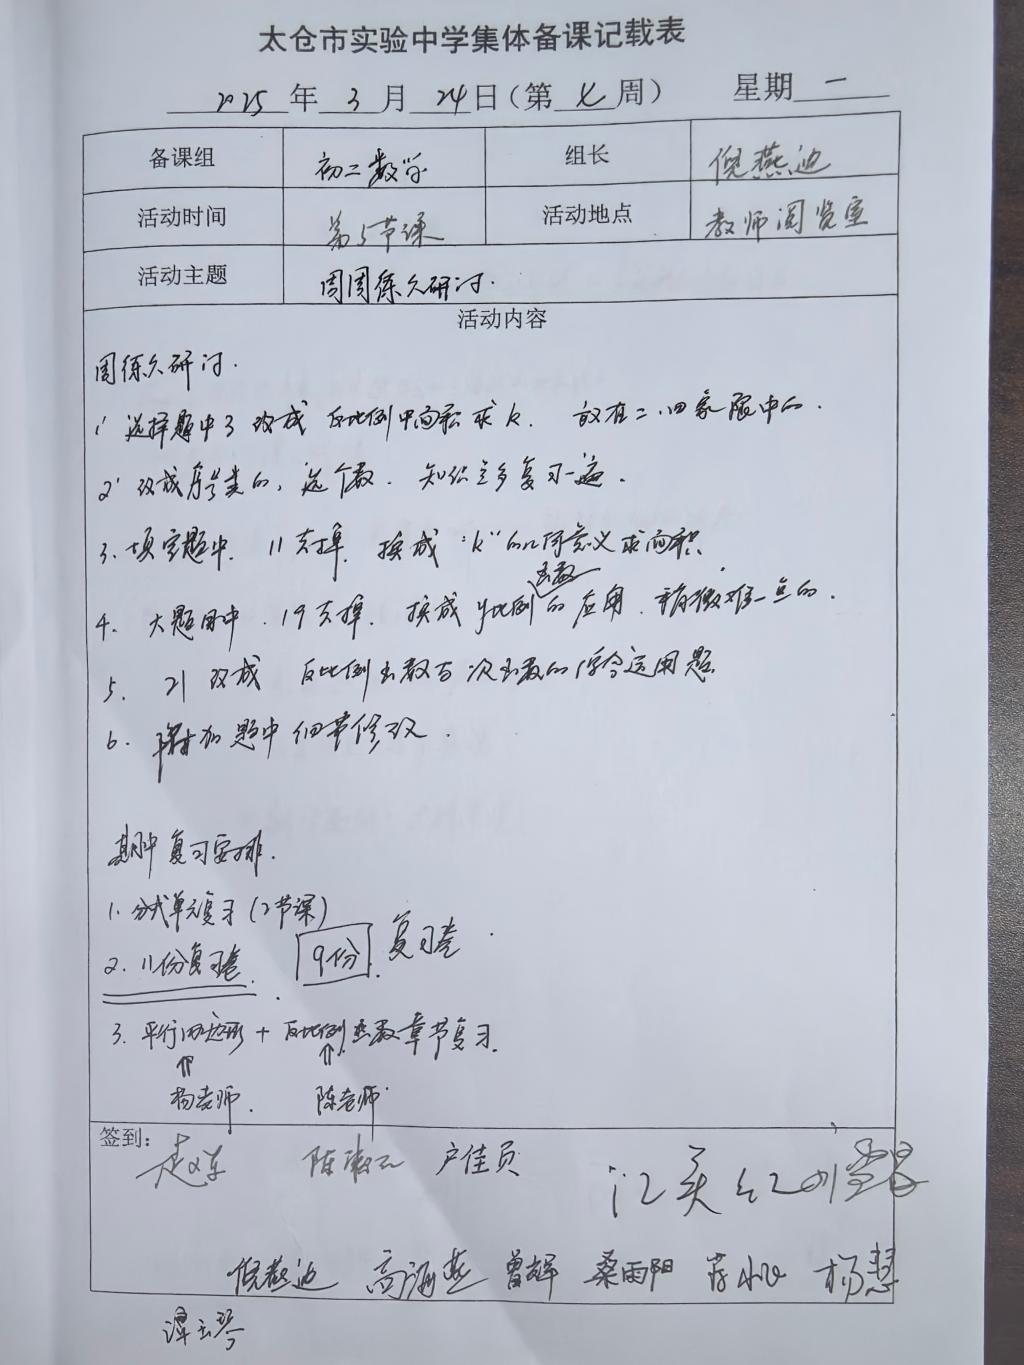 太仓市实验中学集体备课记载表
2025 年 3 月 24 日（第 七 周） 星期 一
备课组 初二数学 组长 倪燕迪
活动时间 第5节课 活动地点 教师阅览室
活动主题 周周练久研讨.
活动内容
周练久研讨.
1' 选择题中3 改成 反比例中面积求k. 放在二.四象限中的.
2' 改成 的, 选个数. 知识 多复习一遍.
3. 填空题中. 11去掉. 换成 "k"的几何意义求面积.
函数
4. 大题目中. 19去掉. 换成反比例的应用. 稍微难一点的.
5. 21 改成 反比例函数与一次函数的综合运用题.
6. 附加题中细节修改.
期中复习安排.
1. 分式单元复习(2节课)
2. 11份复习卷. 9份 复习卷.
3. 平行四边形 + 反比例函数章节复习.
⇑ ⇑
杨老师. 陈老师
签到:
陈 户佳员 江美红 刘雪
倪燕迪 高海燕 曾辉 桑雨阳 蒋 杨慧
谭云琴